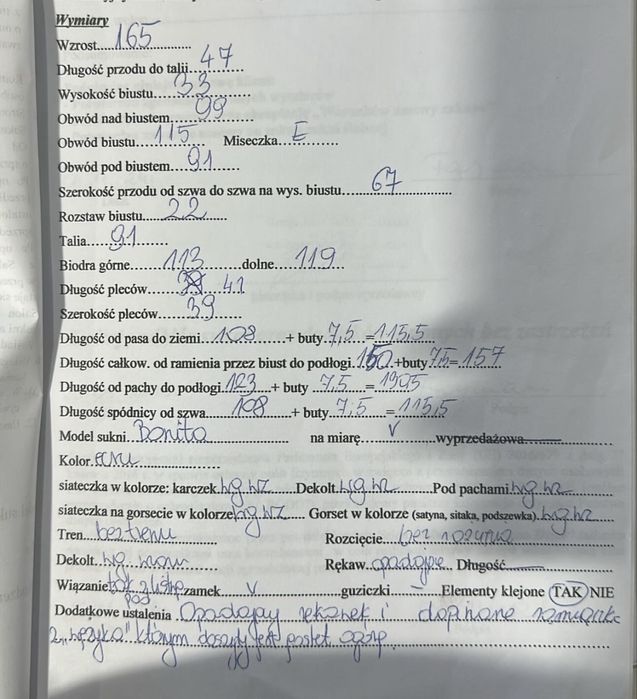 Wymiary
Wzrost....165....................
Długość przodu do talii...47............
Wysokość biustu.......33.............
Obwód nad biustem.......99............
Obwód biustu.......115......... Miseczka...E............
Obwód pod biustem....91...........
Szerokość przodu od szwa do szwa na wys. biustu........67....................
Rozstaw biustu.....22.........
Talia......91...........
Biodra górne.......113..........dolne....119..........
Długość pleców....... 41
Szerokość pleców.......39.........
Długość od pasa do ziemi...108.......+ buty 7,5 =115,5
Długość całkow. od ramienia przez biust do podłogi.150.+buty 7,5= 157
Długość od pachy do podłogi.123....+ buty ..7,5....= 1305
Długość spódnicy od szwa.......108.......+ buty....7,5....=115,5
Model sukni..Bonita................... na miarę......V.......wyprzedażowa
Kolor.ecru................
siateczka w kolorze: karczek. Dekolt. Pod pachami
siateczka na gorsecie w kolorze Gorset w kolorze (satyna, sitaka, podszewka).
Tren...bez trenu......... Rozcięcie....bez rozcięcia
Dekolt.. Rękaw..opadające.. Długość
Wiązanie zamek......V...............guziczki....–...... Elementy klejone TAK NIE
Dodatkowe ustalenia .Opadający rękawek i dopinane ramiączko
z